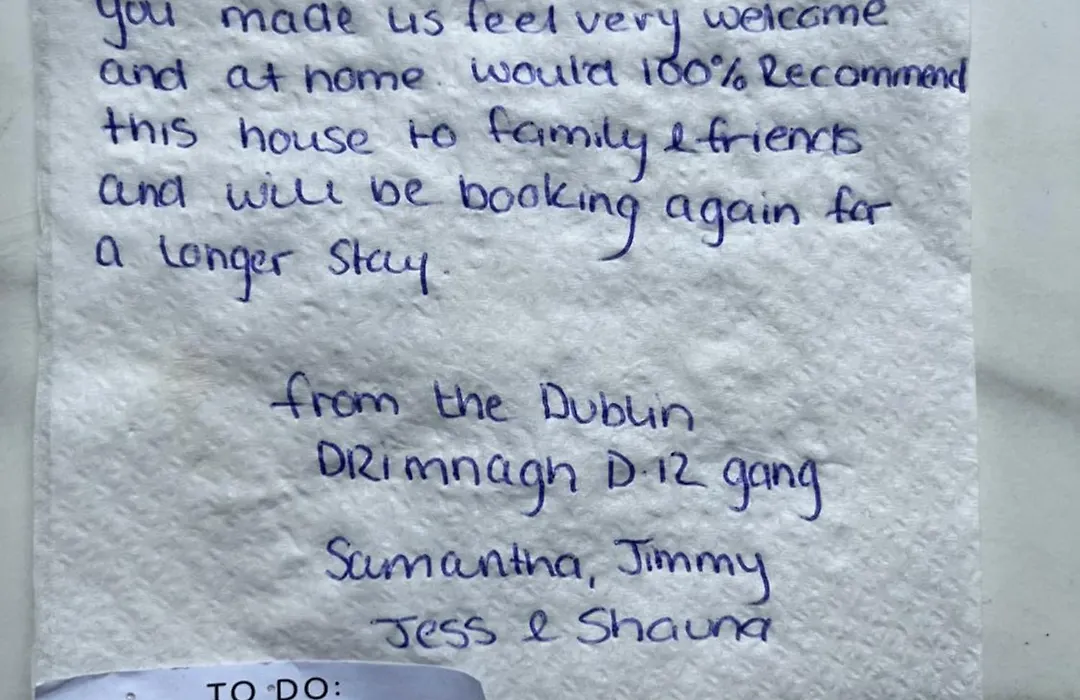 you made us feel very welcome
and at home. would 100% Recommend
this house to family & friends
and will be booking again for
a longer stay.
from the Dublin
DRimnagh D.12 gang
Samantha, Jimmy
Jess & Shauna
TO DO: